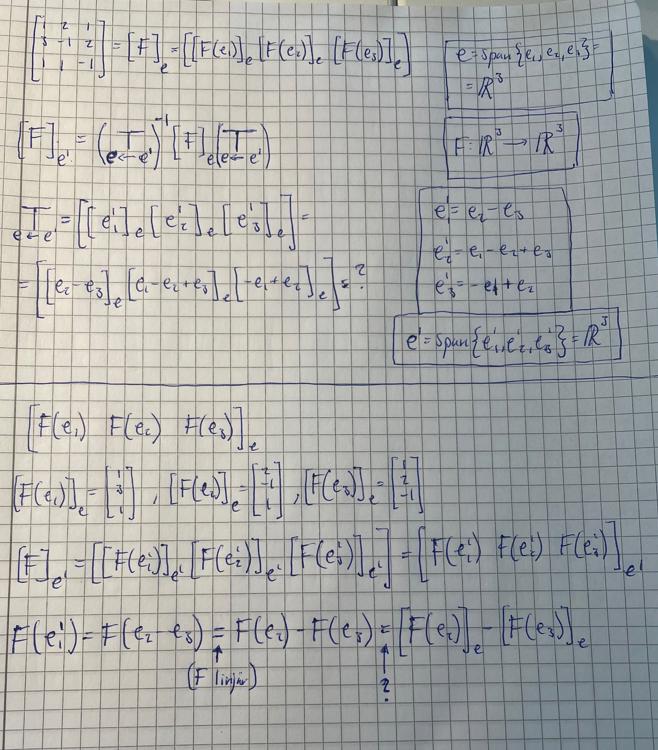 [1 2 1; 3 -1 2; 1 1 -1] = [F]_e = [[F(e₁)]_e [F(e₂)]_e [F(e₃)]_e]
e = span{e₁, e₂, e₃} =
= ℝ³
[F]_e' = (T_{e←e'})⁻¹ [F]_e (T_{e←e'})
F: ℝ³ → ℝ³
T_{e←e'} = [[e'₁]_e [e'₂]_e [e'₃]_e] =
= [[e₂-e₃]_e [e₁-e₂+e₃]_e [-e₁+e₂]_e] = ?
e'₁ = e₂ - e₃
e'₂ = e₁ - e₂ + e₃
e'₃ = -e₁ + e₂
e' = span{e'₁, e'₂, e'₃} = ℝ³
[F(e₁) F(e₂) F(e₃)]_e
[F(e₁)]_e = [1; 3; 1], [F(e₂)]_e = [2; -1; 1], [F(e₃)]_e = [1; 2; -1]
[F]_e' = [[F(e'₁)]_e' [F(e'₂)]_e' [F(e'₃)]_e'] = [F(e'₁) F(e'₂) F(e'₃)]_e'
F(e'₁) = F(e₂ - e₃) = F(e₂) - F(e₃) = [F(e₂)]_e - [F(e₃)]_e
↑ ↑
(F linjär) ?